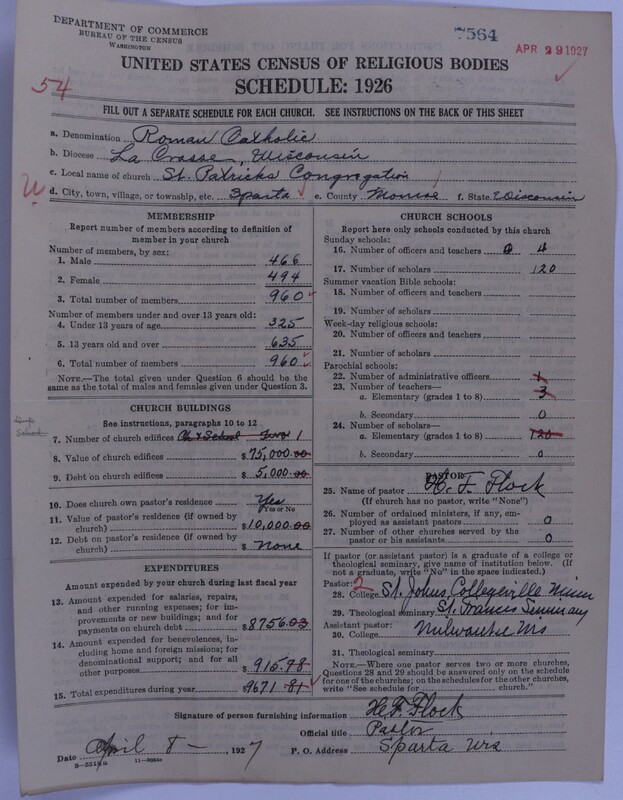 DEPARTMENT OF COMMERCE
BUREAU OF THE CENSUS
WASHINGTON
7564
APR 29 1927
UNITED STATES CENSUS OF RELIGIOUS BODIES
SCHEDULE: 1926
54
FILL OUT A SEPARATE SCHEDULE FOR EACH CHURCH. SEE INSTRUCTIONS ON THE BACK OF THIS SHEET
a. Denomination Roman Catholic
b. Diocese La Crosse, Wisconsin
c. Local name of church St. Patricks Congregation
d. City, town, village, or township, etc. Sparta e. County Monroe f. State Wisconsin
MEMBERSHIP
Report number of members according to definition of
member in your church
Number of members, by sex:
1. Male 466
2. Female 494
3. Total number of members 960
Number of members under and over 13 years old:
4. Under 13 years of age 325
5. 13 years old and over 635
6. Total number of members 960
NOTE.—The total given under Question 6 should be the
same as the total of males and females given under Question 3.
CHURCH BUILDINGS
See instructions, paragraphs 10 to 12
7. Number of church edifices Ch & School Two 1
8. Value of church edifices $75,000.00
9. Debt on church edifices $5,000.00
10. Does church own pastor's residence Yes
Yes or No
11. Value of pastor's residence (if owned by
church) $10,000.00
12. Debt on pastor's residence (if owned by
church) $ None
EXPENDITURES
Amount expended by your church during last fiscal year
13. Amount expended for salaries, repairs,
and other running expenses; for im-
provements or new buildings; and for
payments on church debt $8756.03
14. Amount expended for benevolences, in-
cluding home and foreign missions; for
denominational support; and for all
other purposes $915.78
15. Total expenditures during year $9671 81
CHURCH SCHOOLS
Report here only schools conducted by this church
Sunday schools:
16. Number of officers and teachers 4
17. Number of scholars 120
Summer vacation Bible schools:
18. Number of officers and teachers
19. Number of scholars
Week-day religious schools:
20. Number of officers and teachers
21. Number of scholars
Parochial schools:
22. Number of administrative officers 1
23. Number of teachers—
a. Elementary (grades 1 to 8) 3
b. Secondary 0
24. Number of scholars—
a. Elementary (grades 1 to 8) 120
b. Secondary 0
PASTOR
25. Name of pastor H. F. Flock
(If church has no pastor, write "None")
26. Number of ordained ministers, if any, em-
ployed as assistant pastors 0
27. Number of other churches served by the
pastor or his assistants 0
If pastor (or assistant pastor) is a graduate of a college or
theological seminary, give name of institution below. (If
not a graduate, write "No" in the space indicated.)
Pastor: 2
28. College St. Johns Collegeville Minn
29. Theological seminary St. Francis Seminary
Assistant pastor:
30. College Milwaukee Wis
31. Theological seminary
NOTE.—Where one pastor serves two or more churches,
Questions 28 and 29 should be answered only on the schedule
for one of the churches; on the schedules for the other churches,
write "See schedule for church."
Signature of person furnishing information H. F. Flock
Official title Pastor
Date April 8 - , 1927 P. O. Address Sparta Wis